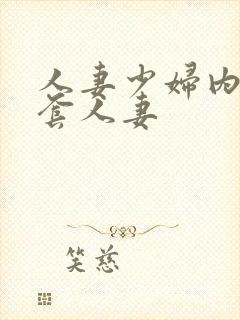 人妻少婦内
套人妻
笑慈